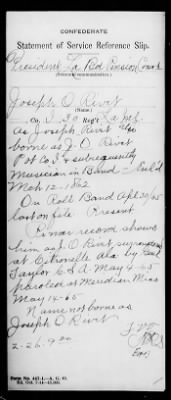 CONFEDERATE
Statement of Service Reference Slip.
President La Bd Pension Com
Joseph O. Rivet
(Name.)
Co. I. 30 Reg't La Inf
as Joseph Rivet also
borne as J. O. Rivet
Pvt Co I & subsequently
musician in Band - Enl'd
Mch 12-1862
On Roll Band Apl 30/65
last on file Present
P. of war record shows
him as J. O. Rivet surrendered
at Citronelle Ala by Gen'l
Taylor C S A May 4-65
paroled at Meridian Miss
May 14-65
Name not borne as
Joseph O Rivet
2-26-9